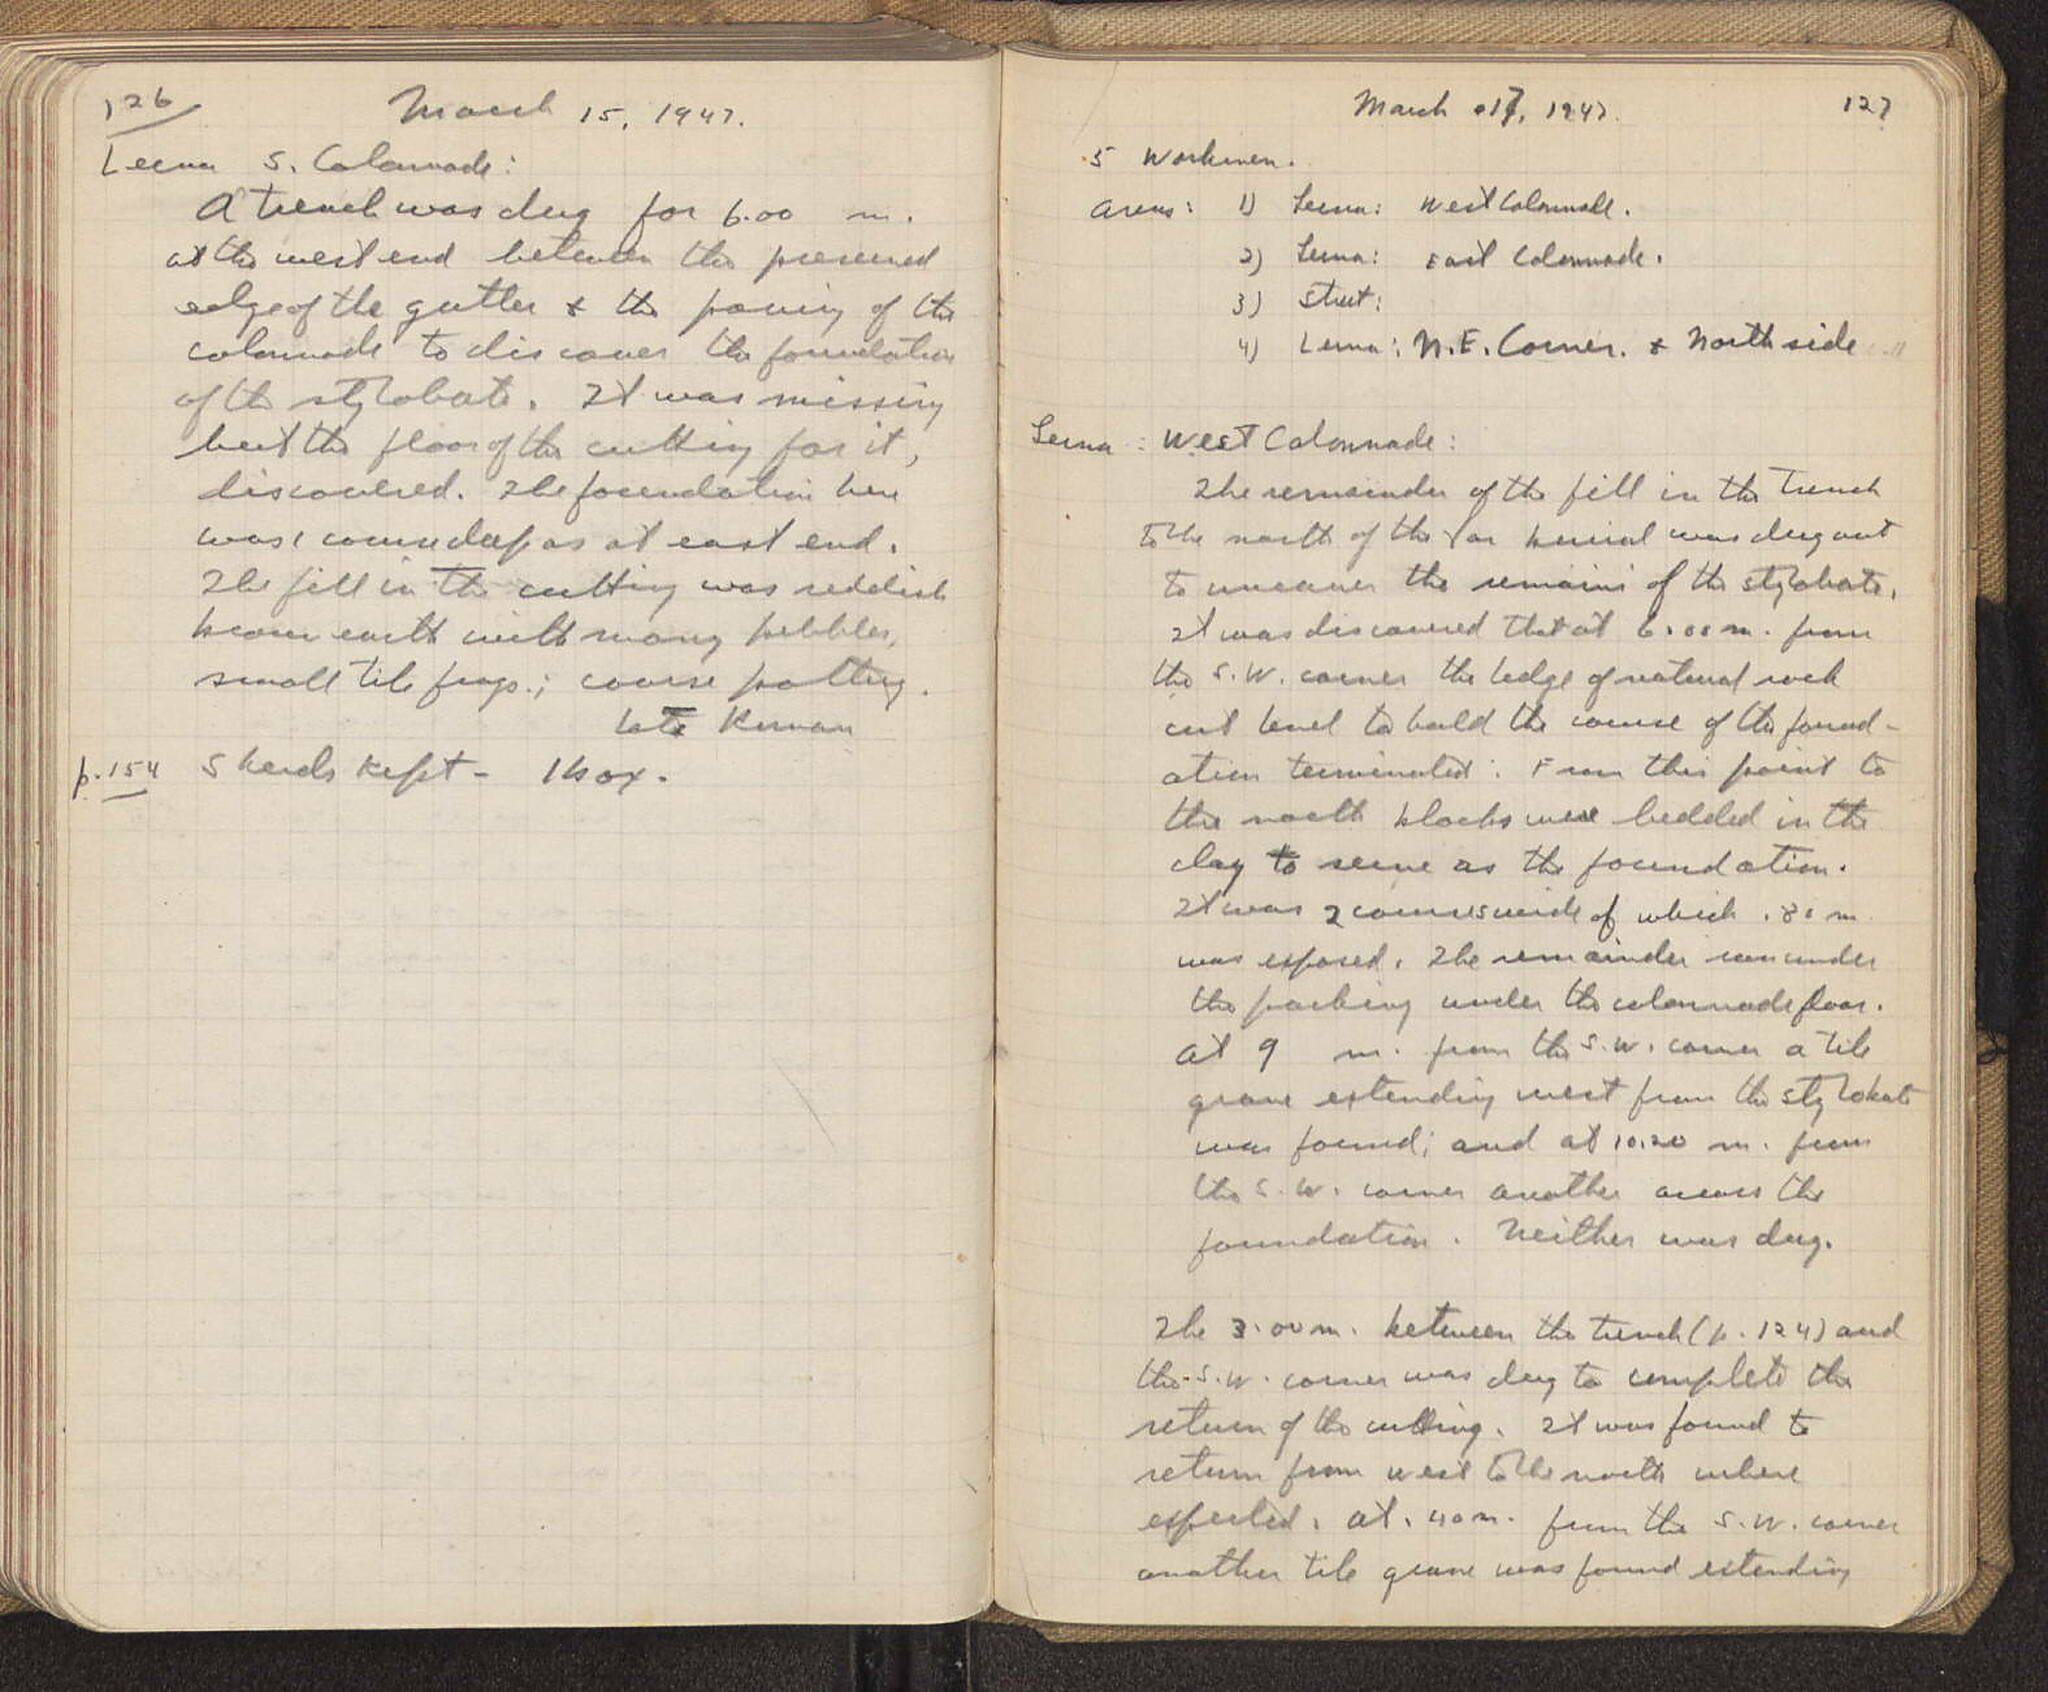 126
March 15, 1947.
Lerna S. Colonnade:
A trench was dug for 6.00 m.
at the west end between the preserved
edge of the gutter & the paving of the
colonnade to discover the foundation
of the stylobate. It was missing
but the floor of the cutting for it,
discovered. The foundation here
was 1 course deep as at east end.
The fill in the cutting was reddish
brown earth with many pebbles,
small tile frags.; coarse pottery.
late Roman
p. 154 Sherds kept - 1 box.
March 17, 1947.
127
5 Workmen.
Areas: 1) Lerna: West Colonnade.
2) Lerna: East Colonnade.
3) Street:
4) Lerna: N.E. Corner. & North side
Lerna: West Colonnade:
The remainder of the fill in the trench
to the north of the jar burial was dug out
to uncover the remains of the stylobate.
It was discovered that at 6.00 m. from
the S.W. corner the ledge of natural rock
cut level to hold the course of the found-
ation terminated. From this point to
the north blocks were bedded in the
clay to serve as the foundation.
It was 2 courses wide of which .80 m
was exposed. The remainder ran under
the packing under the colonnade floor.
At 9 m. from the S.W. corner a tile
grave extending west from the stylobate
was found; and at 10.20 m. from
the S.W. corner another across the
foundation. Neither was dug.
The 3.00 m. between the trench (p. 124) and
the S.W. corner was dug to complete the
return of the cutting. It was found to
return from west to the north where
expected. At .40 m. from the S.W. corner
another tile grave was found extending